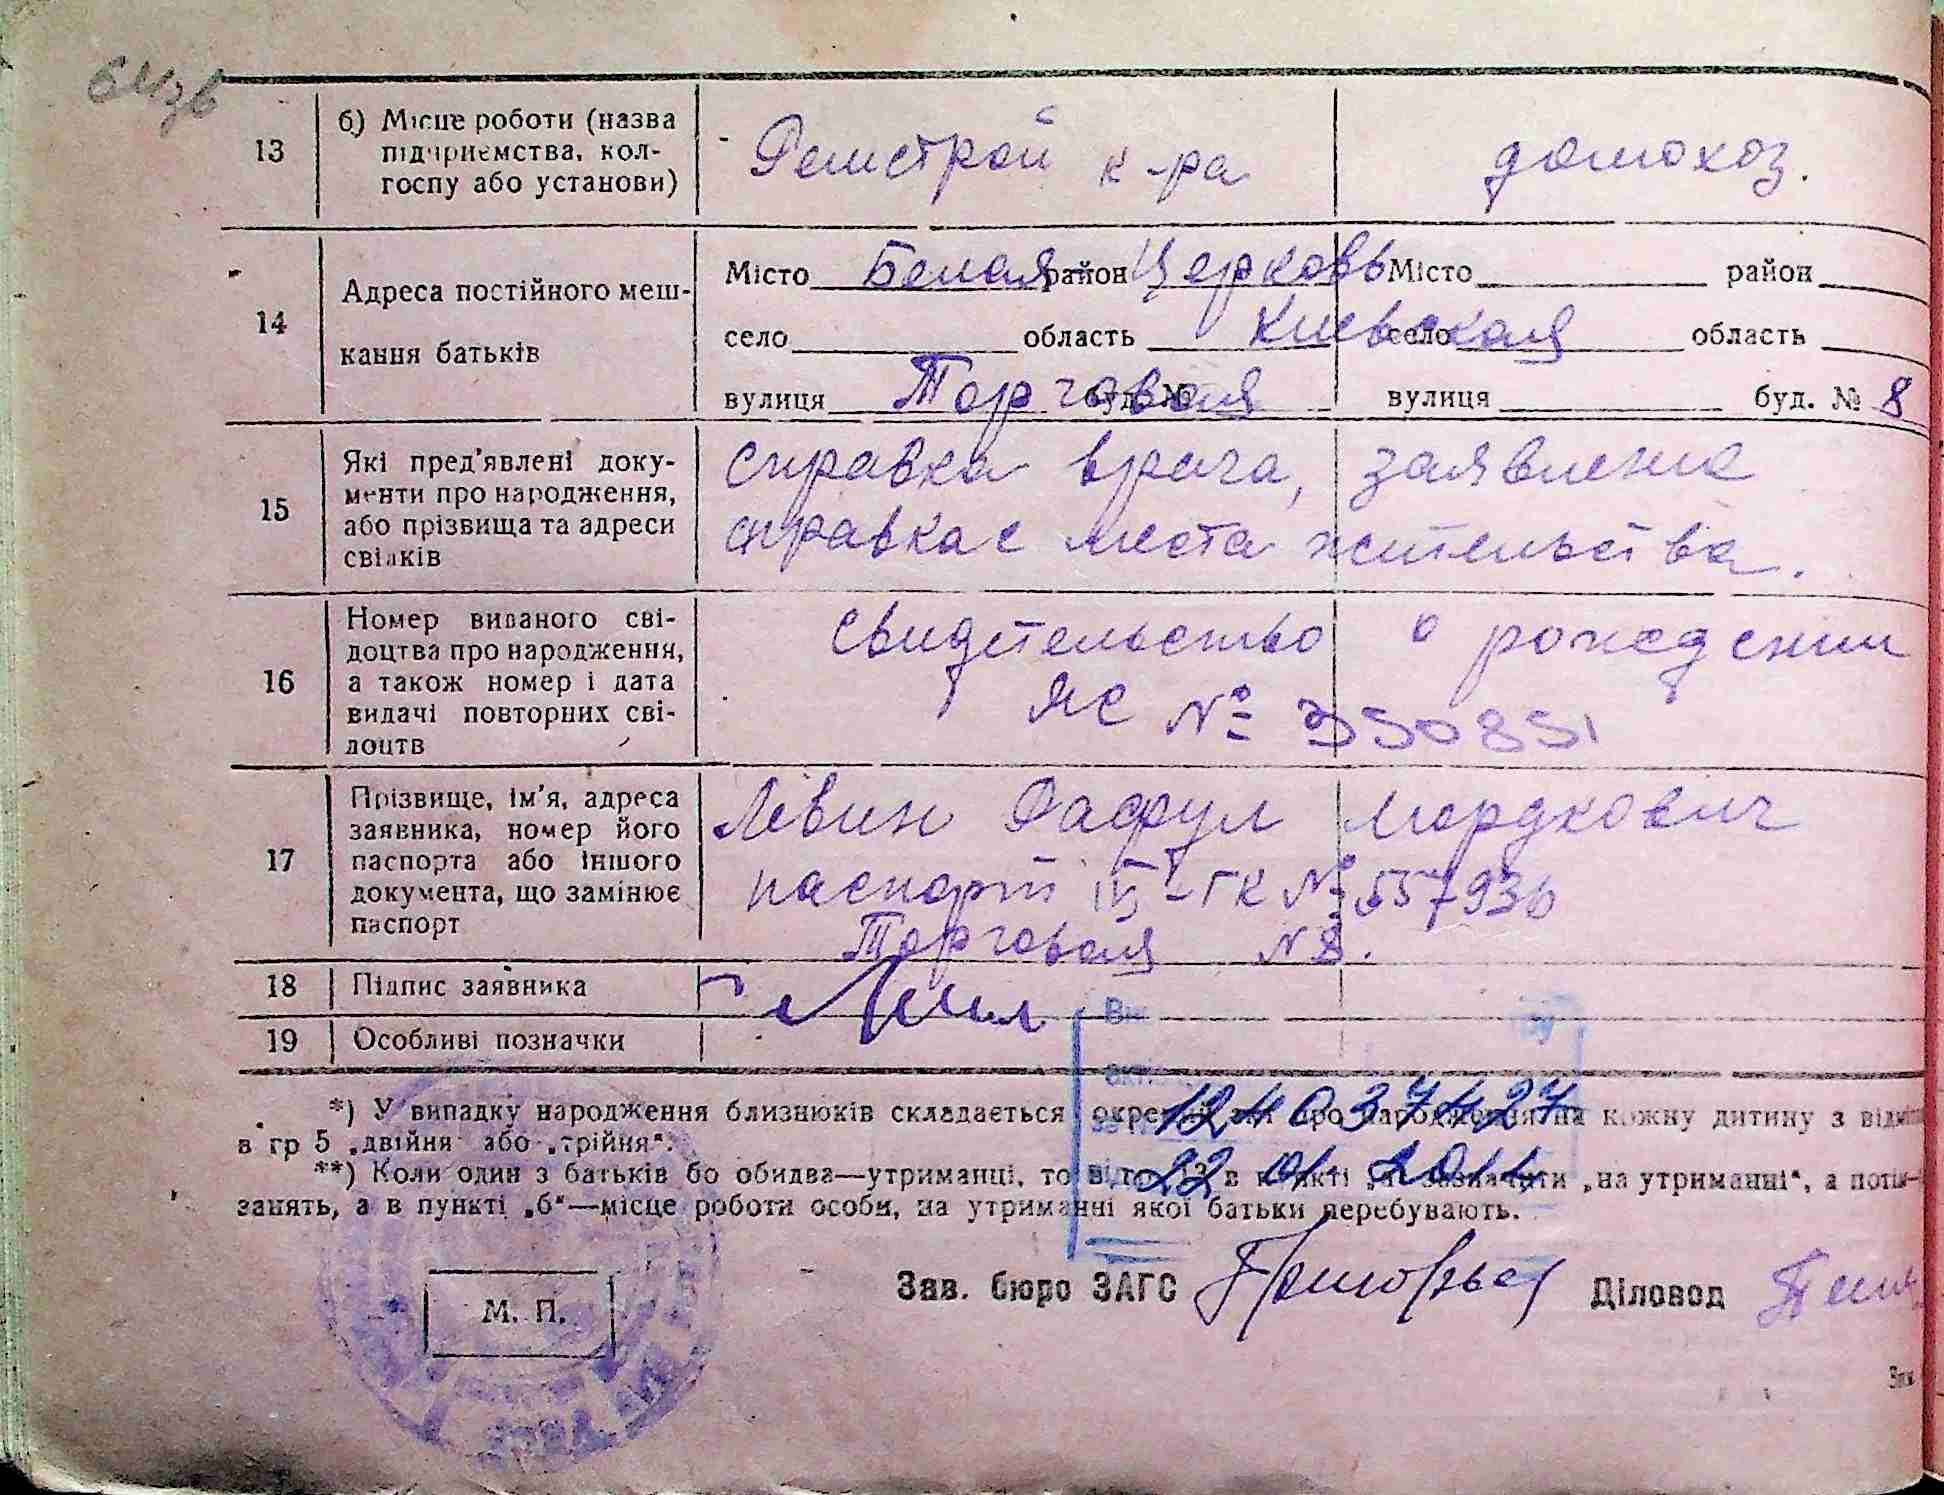 13
б) Місце роботи (назва
підприємства, кол-
госпу або установи)
Ремстрой к-ра
домохоз.
14
Адреса постійного меш-
кання батьків
Місто Белая район Церковь Місто район
село область Киевская село область
вулиця Торговая буд. № вулиця буд. № 8
15
Які пред'явлені доку-
менти про народження,
або прізвища та адреси
свідків
справка врача, заявление
справка с места жительства.
16
Номер виданого сві-
доцтва про народження,
а також номер і дата
видачі повторних сві-
доцтв
Свидетельство о рождении
ЯС № 350851
17
Прізвище, ім'я, адреса
заявника, номер його
паспорта або іншого
документа, що замінює
паспорт
Левин Рафул Мордкович
паспорт ГК № 557936
Торговая N 8.
18
Підпис заявника
19
Особливі позначки
*) У випадку народження близнюків складається окремий акт про народження на кожну дитину з
в гр 5 „двійня" або „трійня".
**) Коли один з батьків бо обидва—утриманці, то в 13 в пункті зазначити „на утриманні", а
занять, а в пункті „б"—місце роботи особи, на утриманні якої батьки перебувають.
22 01
М. П.
Зав. бюро ЗАГС
Діловод